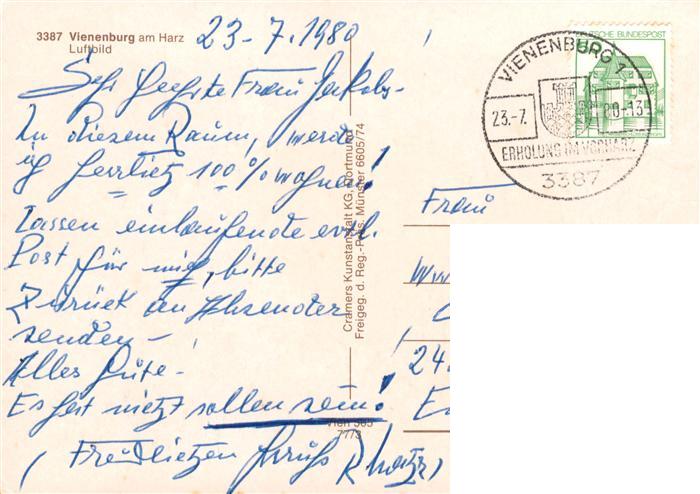 3387 Vienenburg am Harz
Luftbild
23-7.1980
Sehr geehrte Frau Jakobs-
In diesem Raum, werde
ich herrlich 100 % wohnen!
Lassen einlaufende evtl.
Post für mich, bitte
Zurück an Absender
senden -
Alles Gute -
Es hat nicht sollen sein!
( Freundlichen Gruß
Cramers Kunstanstalt KG, Dortmund
Freigeg. d. Reg.-Präs. Münster 6605/74
Vien 505
7773
DEUTSCHE BUNDESPOST
VIENENBURG 1
23.-7. 80-13
ERHOLUNG IM VORHARZ
3387
Frau
24